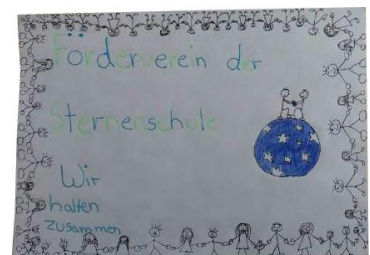 Förderverein der
Sternenschule
Wir
halten
zusammen